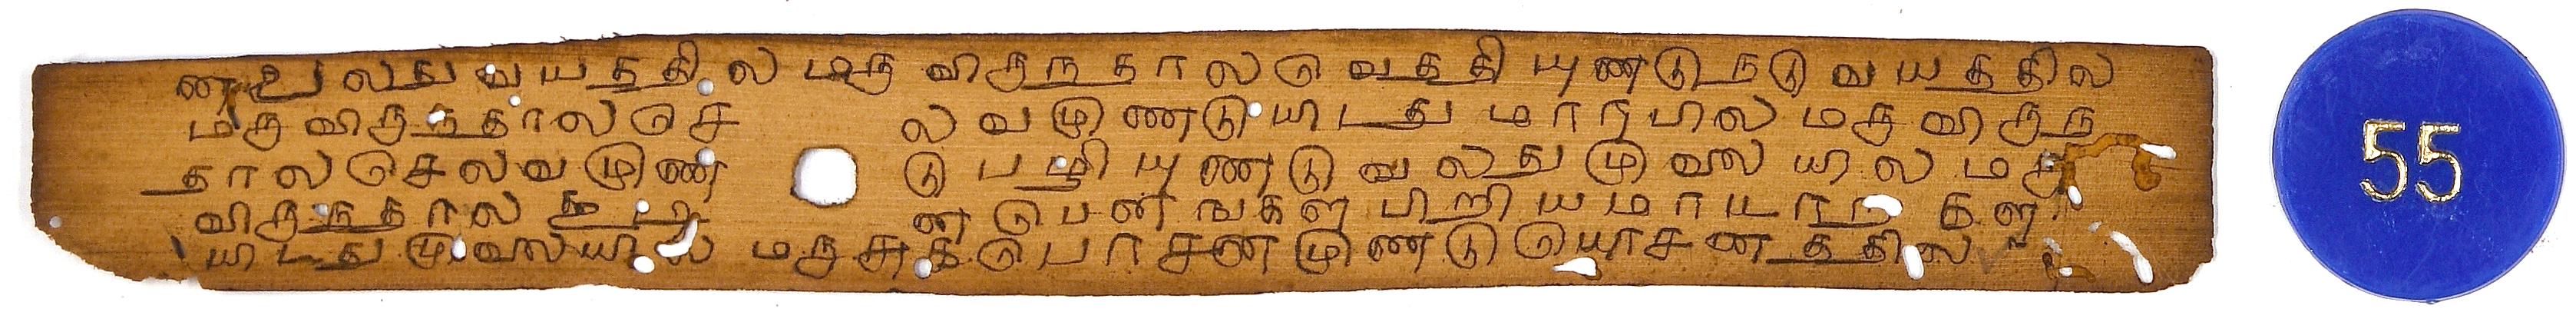 ண வலது வயத்தில மருவிருந்தால பெத்தியுணடு நடு வயத்தில
மருவிருந்தால செ லவமுணடு யிடது மாரபில மருவிருந
தால செலவமுண டு பழியுணடு வலது முலையில மரு
விருந்தால ன பெணஙகள பிறியமாயாருந களு
யிடது முலையில மரு சுகபொசனமுணடு யொசனத்தில
55